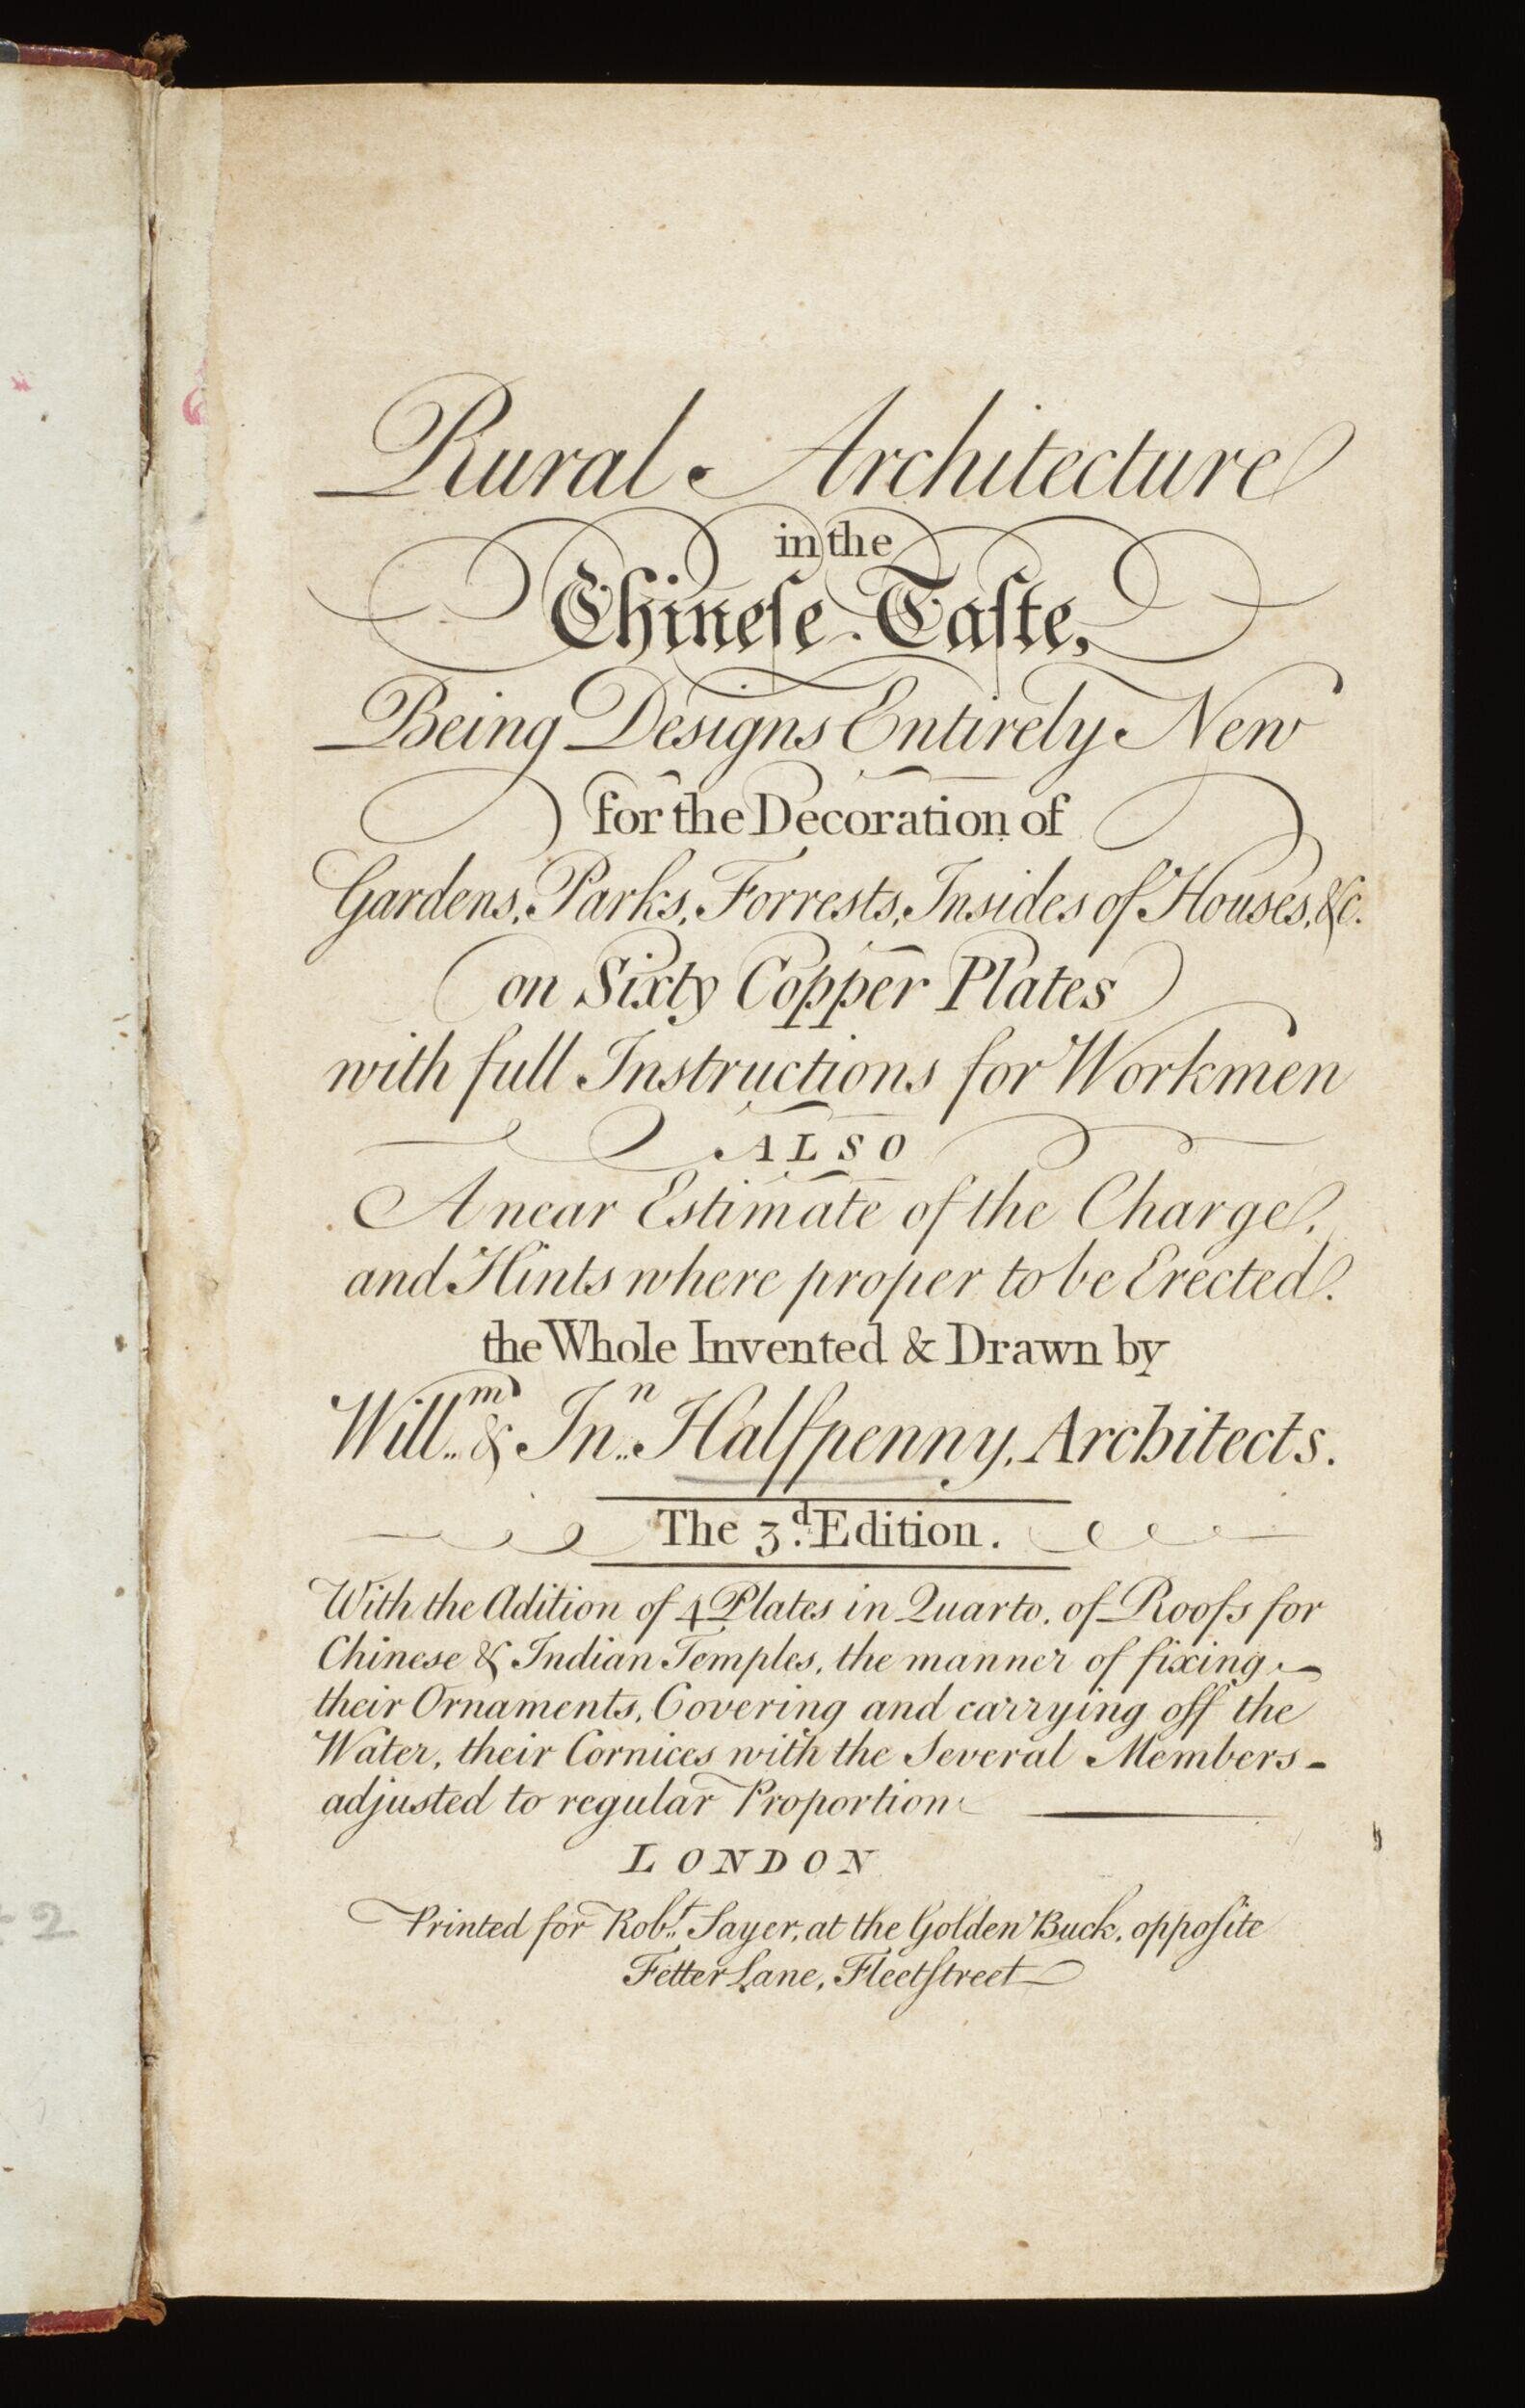 Rural Architecture
in the
Chineſe Taſte,
Being Designs Entirely New
for the Decoration of
Gardens, Parks, Forrests, Insides of Houses, &c.
on Sixty Copper Plates
with full Instructions for Workmen
ALSO
A near Estimate of the Charge,
and Hints where proper to be Erected.
the Whole Invented & Drawn by
Will.m & Jn.n Halfpenny, Architects.
The 3.d Edition.
With the Adition of 4 Plates in Quarto, of Roofs for
Chinese & Indian Temples, the manner of fixing
their Ornaments, Covering and carrying off the
Water, their Cornices with the Several Members
adjusted to regular Proportion
LONDON
Printed for Rob.t Sayer, at the Golden Buck, oppoſite
Fetter Lane, Fleetſtreet
2